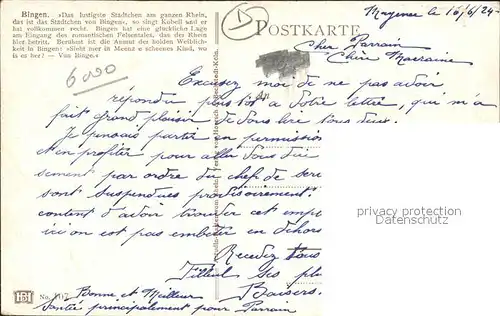 Bingen. »Das lustigste Städtchen am ganzen Rhein,
das ist das Städtchen von Bingen«, so singt Kobell und er
hat vollkommen recht. Bingen hat eine glückliche Lage
am Eingang des romantischen Felsentales, das der Rhein
hier betritt. Berühmt ist die Anmut der holden Weiblich-
keit in Bingen: »Sieht mer in Meenz e schoenes Kind, wo
is es her? — Von Binge.«
POSTKARTE
Mayence le 16/6/24
6000
Cher Parrain
Chère Marraine
Excusez moi de ne pas avoir
répondu plus tôt à votre lettre, qui m'a
fait grand plaisir de vous lire tous deux.
Je pensais partir en permission
et en profiter pour aller vous
sement par ordre du chef de
sont suspendues provisoirement.
content d'avoir trouver cet
ici on est pas embêter en dehors
Recevez tous
Filleul ses plus
Baisers.
Bonne et Meilleur
Santé principalement pour Parrain
An
No. 107
privacy protection
watermark